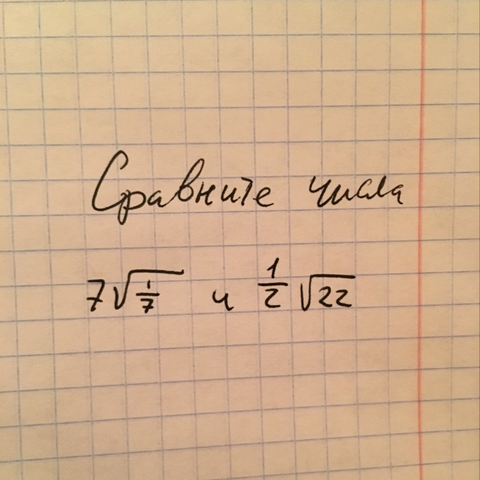 Сравните числа
7√(1/7) и 1/2 √22